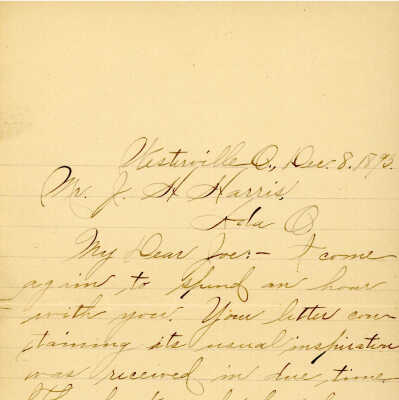 Westerville O., Dec. 8. 1893.
Mr. J. H. Harris.
Ada O.
My Dear Joe:- I come
again to spend an hour
with you. Your letter con-
taining its usual inspiration
was received in due time.